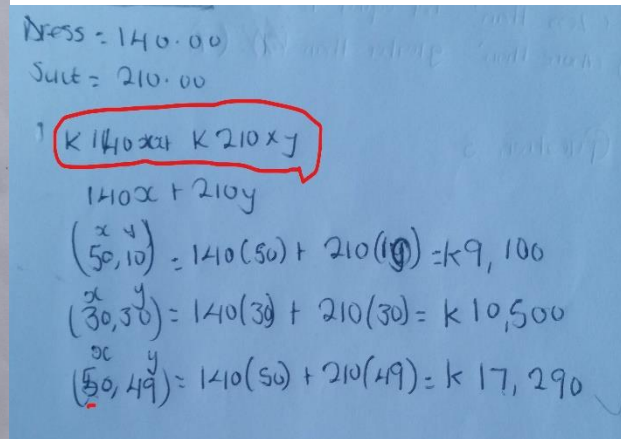 Dress = 140.00
Suit = 210.00
K 140xx+ K 210xy
140x + 210y
x y
(50,10) = 140(50) + 210(10) = K9,100
x y
(30,30) = 140(30) + 210(30) = K 10,500
x y
(50,49) = 140(50) + 210(49) = K 17,290